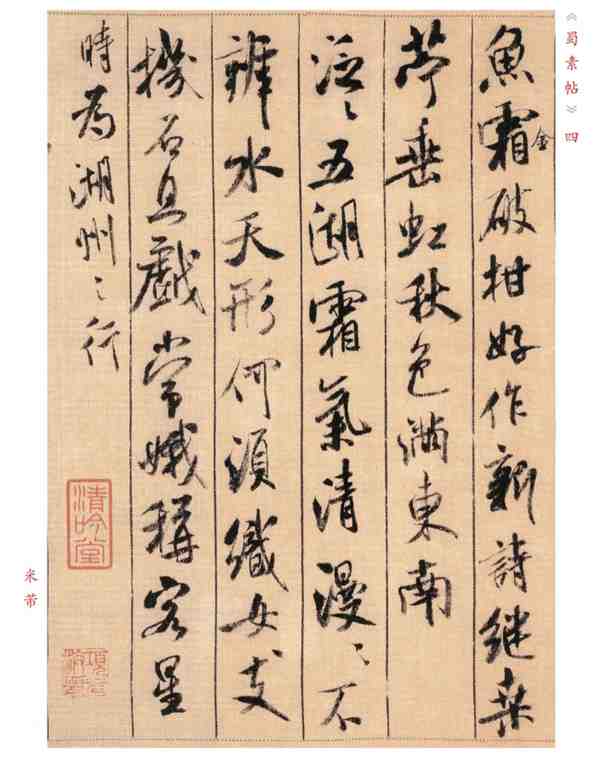 《蜀素帖》四
魚霜金破柑好作新詩继桑
苧垂虹秋色滿東南
泛〻五湖霜氣清漫〻不
辨水天形何須織女支
機石且戲常娥稱客星
時為湖州之行
清吟堂
米芾